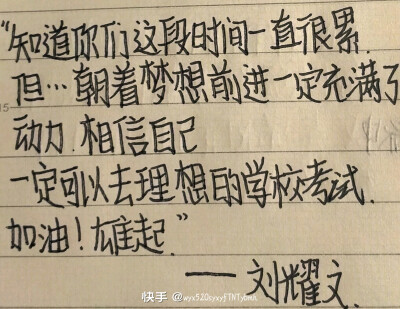 “知道你们这段时间一直很累.
但…朝着梦想前进一定充满了
动力.相信自己
一定可以去理想的学校考试.
加油!雄起.”
——刘耀文.
快手